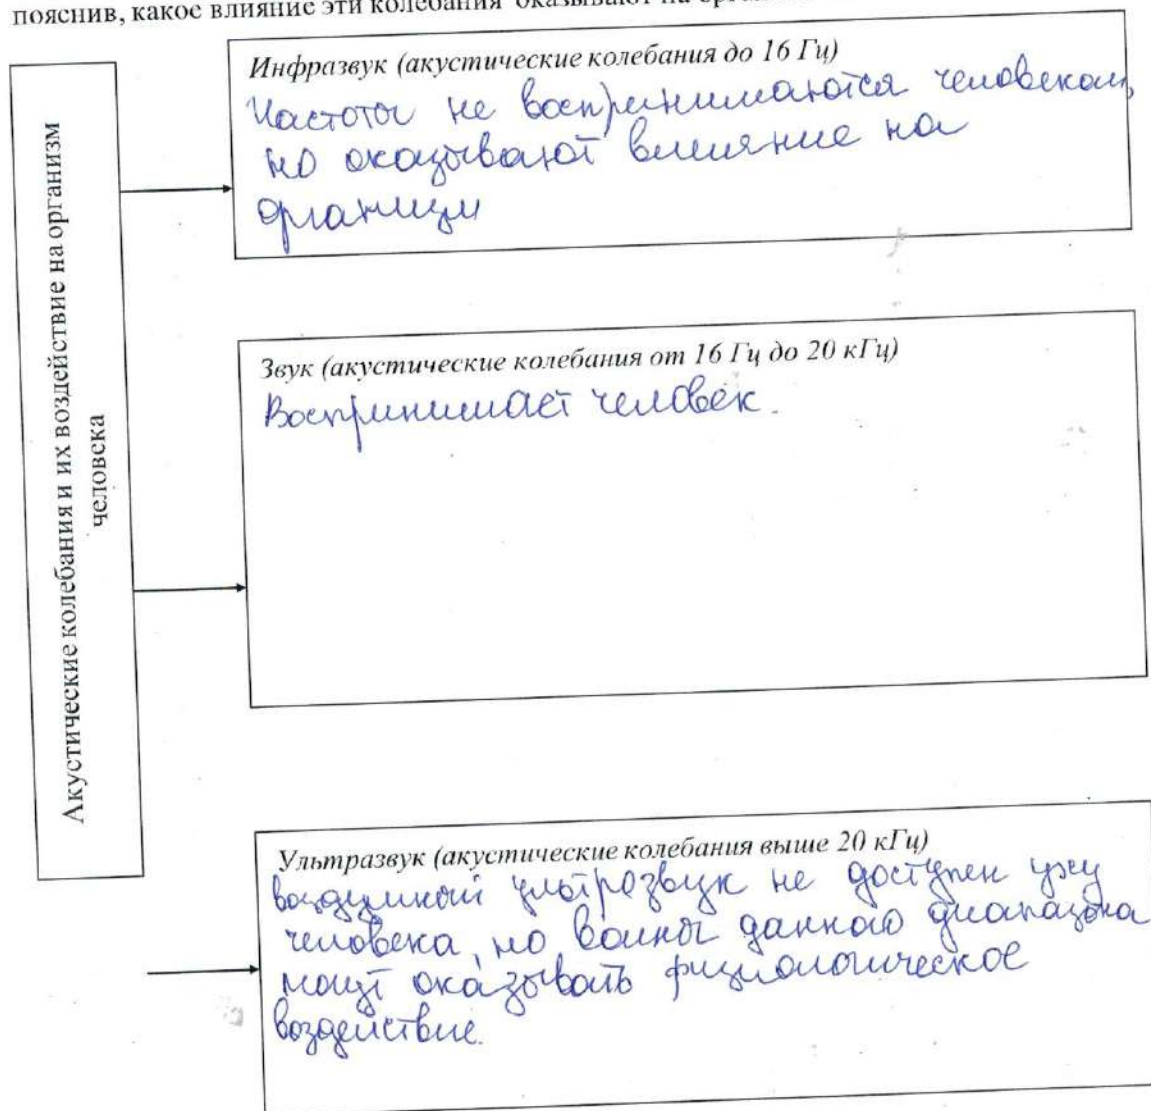 пояснив, какое влияние эти колебания оказывают на
Акустические колебания и их воздействие на организм
человека
Инфразвук (акустические колебания до 16 Гц)
Частоты не воспринимаются человеком,
но оказывают влияние на
организм
Звук (акустические колебания от 16 Гц до 20 кГц)
Воспринимает человек.
Ультразвук (акустические колебания выше 20 кГц)
воздушный ультрозвук не доступен уху
человека, но волны данного диапазона
могут оказывать физиологическое
воздействие.